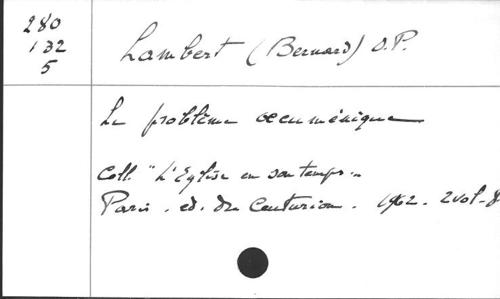 280
132
5
Lambert (Bernard) O.P.
Le problème œcuménique
Coll. "L'Eglise en son temps".
Paris. ed. du Centurion. 1962. 2 vol. 8